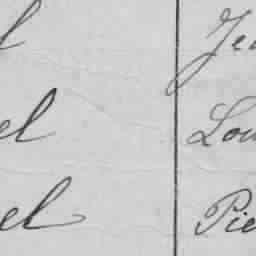 l Jea
el Lou
el Pie